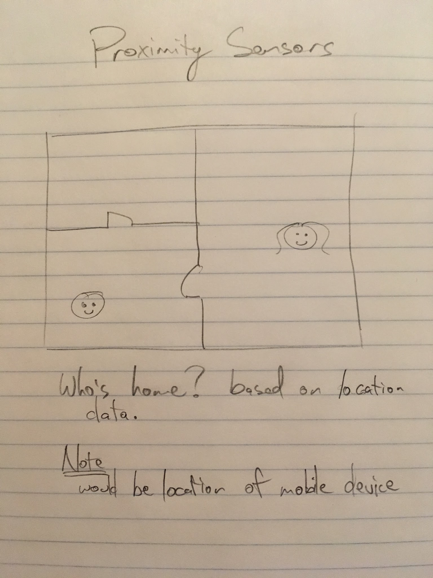 Proximity Sensors
Who's home? based on location
data.
Note
would be location of mobile device